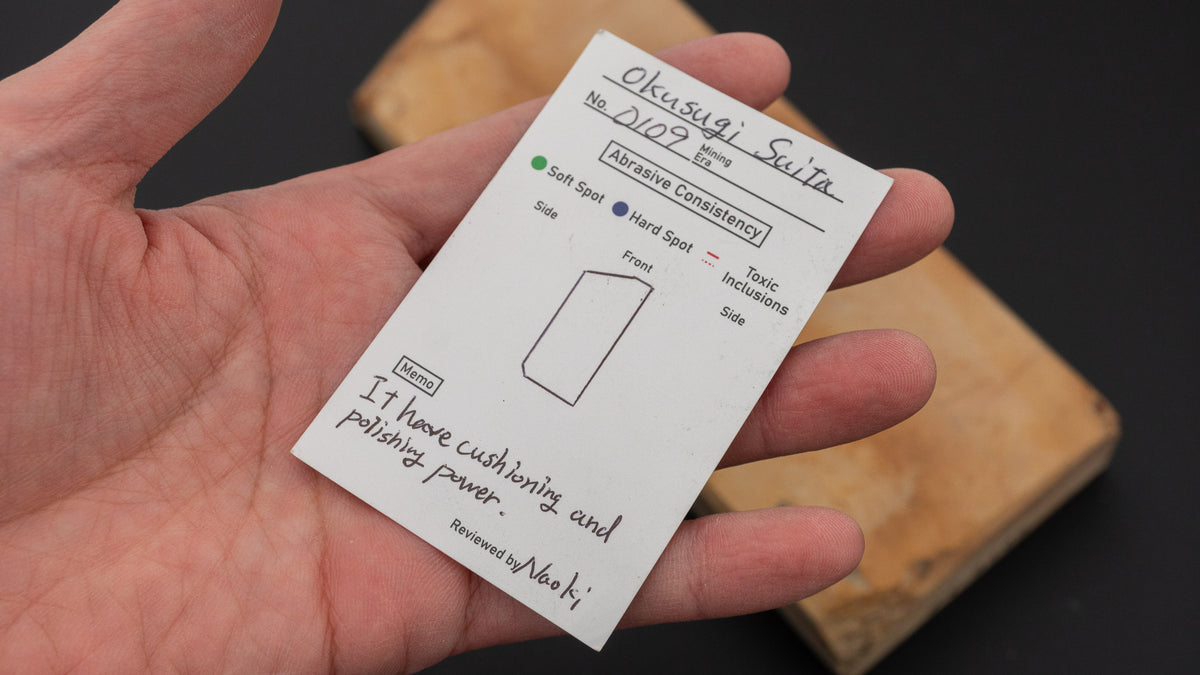 Okusugi Suita
No. D109 Mining Era
Abrasive Consistency
Soft Spot Hard Spot Toxic Inclusions
Side Front Side
Memo
It have cushioning and
polishing power.
Reviewed by Naoki